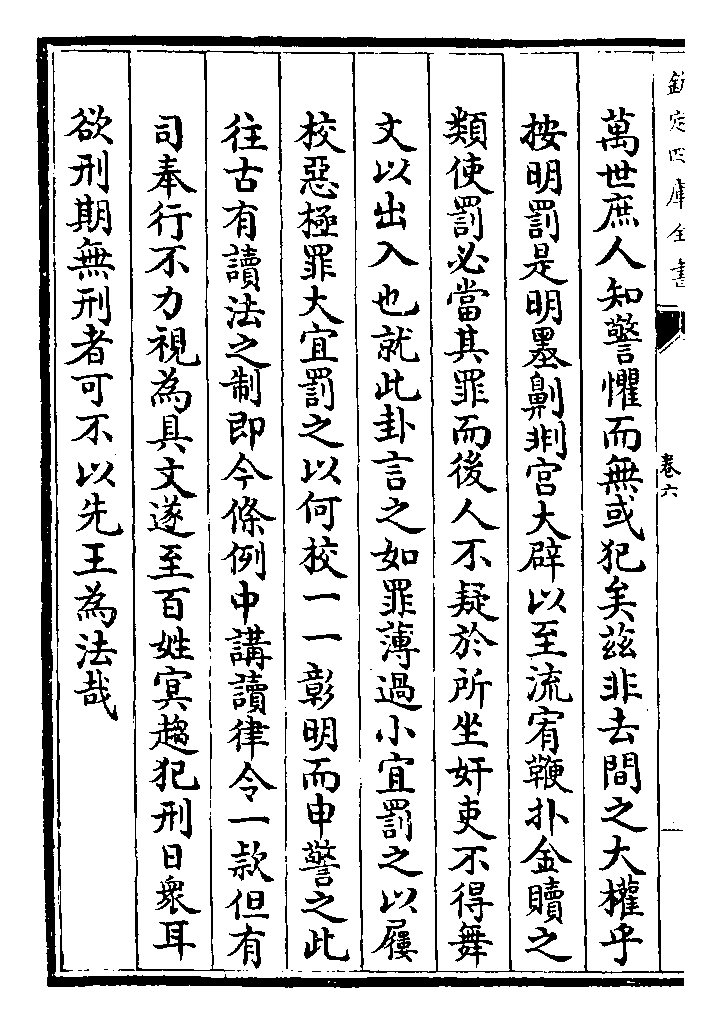 欽定四庫全書
卷六
萬世庶人知警懼而無或犯矣茲非去間之大權乎
按明罰是明墨劓剕宮大辟以至流宥鞭扑金贖之
類使罰必當其罪而後人不疑於所坐奸吏不得舞
文以出入也就此卦言之如罪薄過小宜罰之以屨
校惡極罪大宜罰之以何校一一彰明而申警之此
往古有讀法之制即今條例中講讀律令一款但有
司奉行不力視為具文遂至百姓冥趨犯刑日衆耳
欲刑期無刑者可不以先王為法哉